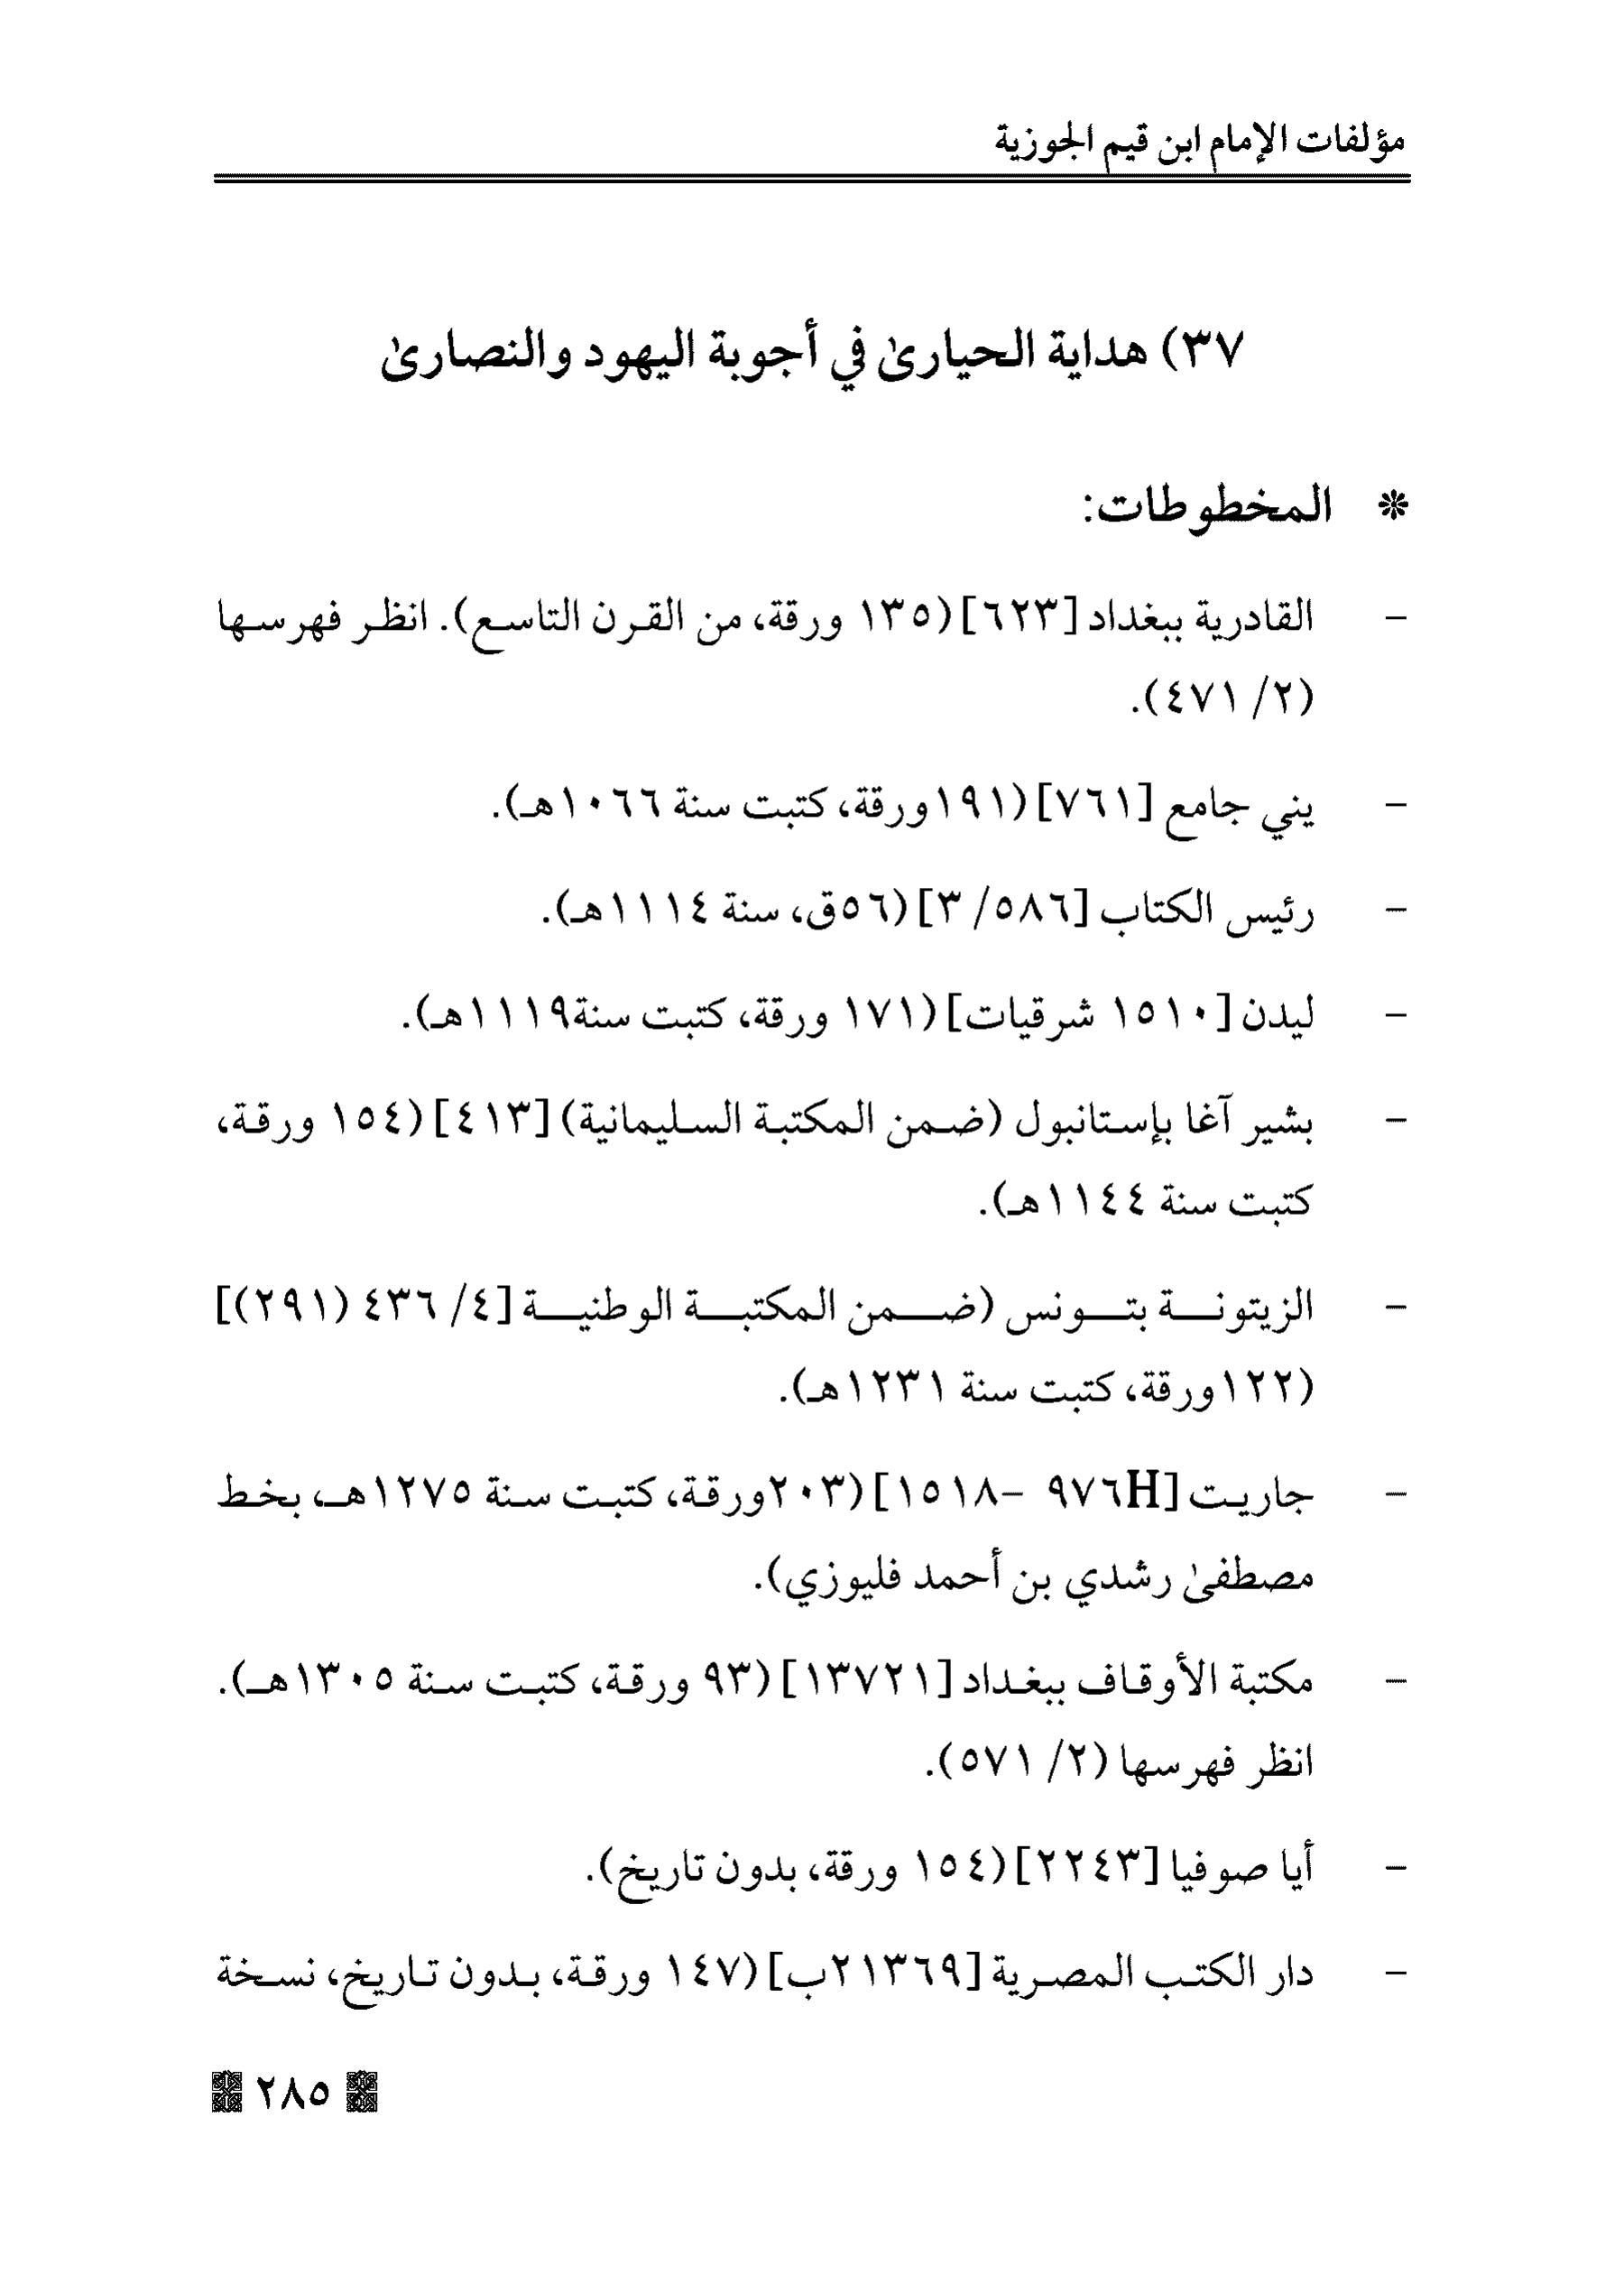 مؤلفات الإمام ابن قيم الجوزية
٣٧) هداية الحيارىٰ في أجوبة اليهود والنصارىٰ
* المخطوطات:
- القادرية ببغداد [٦٢٣] (١٣٥ ورقة، من القرن التاسع). انظر فهرسها
(٢/ ٤٧١).
- يني جامع [٧٦١] (١٩١ورقة، كتبت سنة ١٠٦٦هـ).
- رئيس الكتاب [٥٨٦/ ٣] (٥٦ق، سنة ١١١٤هـ).
- ليدن [١٥١٠ شرقيات] (١٧١ ورقة، كتبت سنة١١١٩هـ).
- بشير آغا بإستانبول (ضمن المكتبة السليمانية) [٤١٣] (١٥٤ ورقة،
كتبت سنة ١١٤٤هـ).
- الزيتونة بتونس (ضمن المكتبة الوطنية [٤/ ٤٣٦ (٢٩١)]
(١٢٢ورقة، كتبت سنة ١٢٣١هـ).
- جاريت [٩٧٦H -١٥١٨] (٢٠٣ورقة، كتبت سنة ١٢٧٥هـ، بخط
مصطفىٰ رشدي بن أحمد فليوزي).
- مكتبة الأوقاف ببغداد [١٣٧٢١] (٩٣ ورقة، كتبت سنة ١٣٠٥هـ).
انظر فهرسها (٢/ ٥٧١).
- أيا صوفيا [٢٢٤٣] (١٥٤ ورقة، بدون تاريخ).
- دار الكتب المصرية [٢١٣٦٩ب] (١٤٧ ورقة، بدون تاريخ، نسخة
٢٨٥